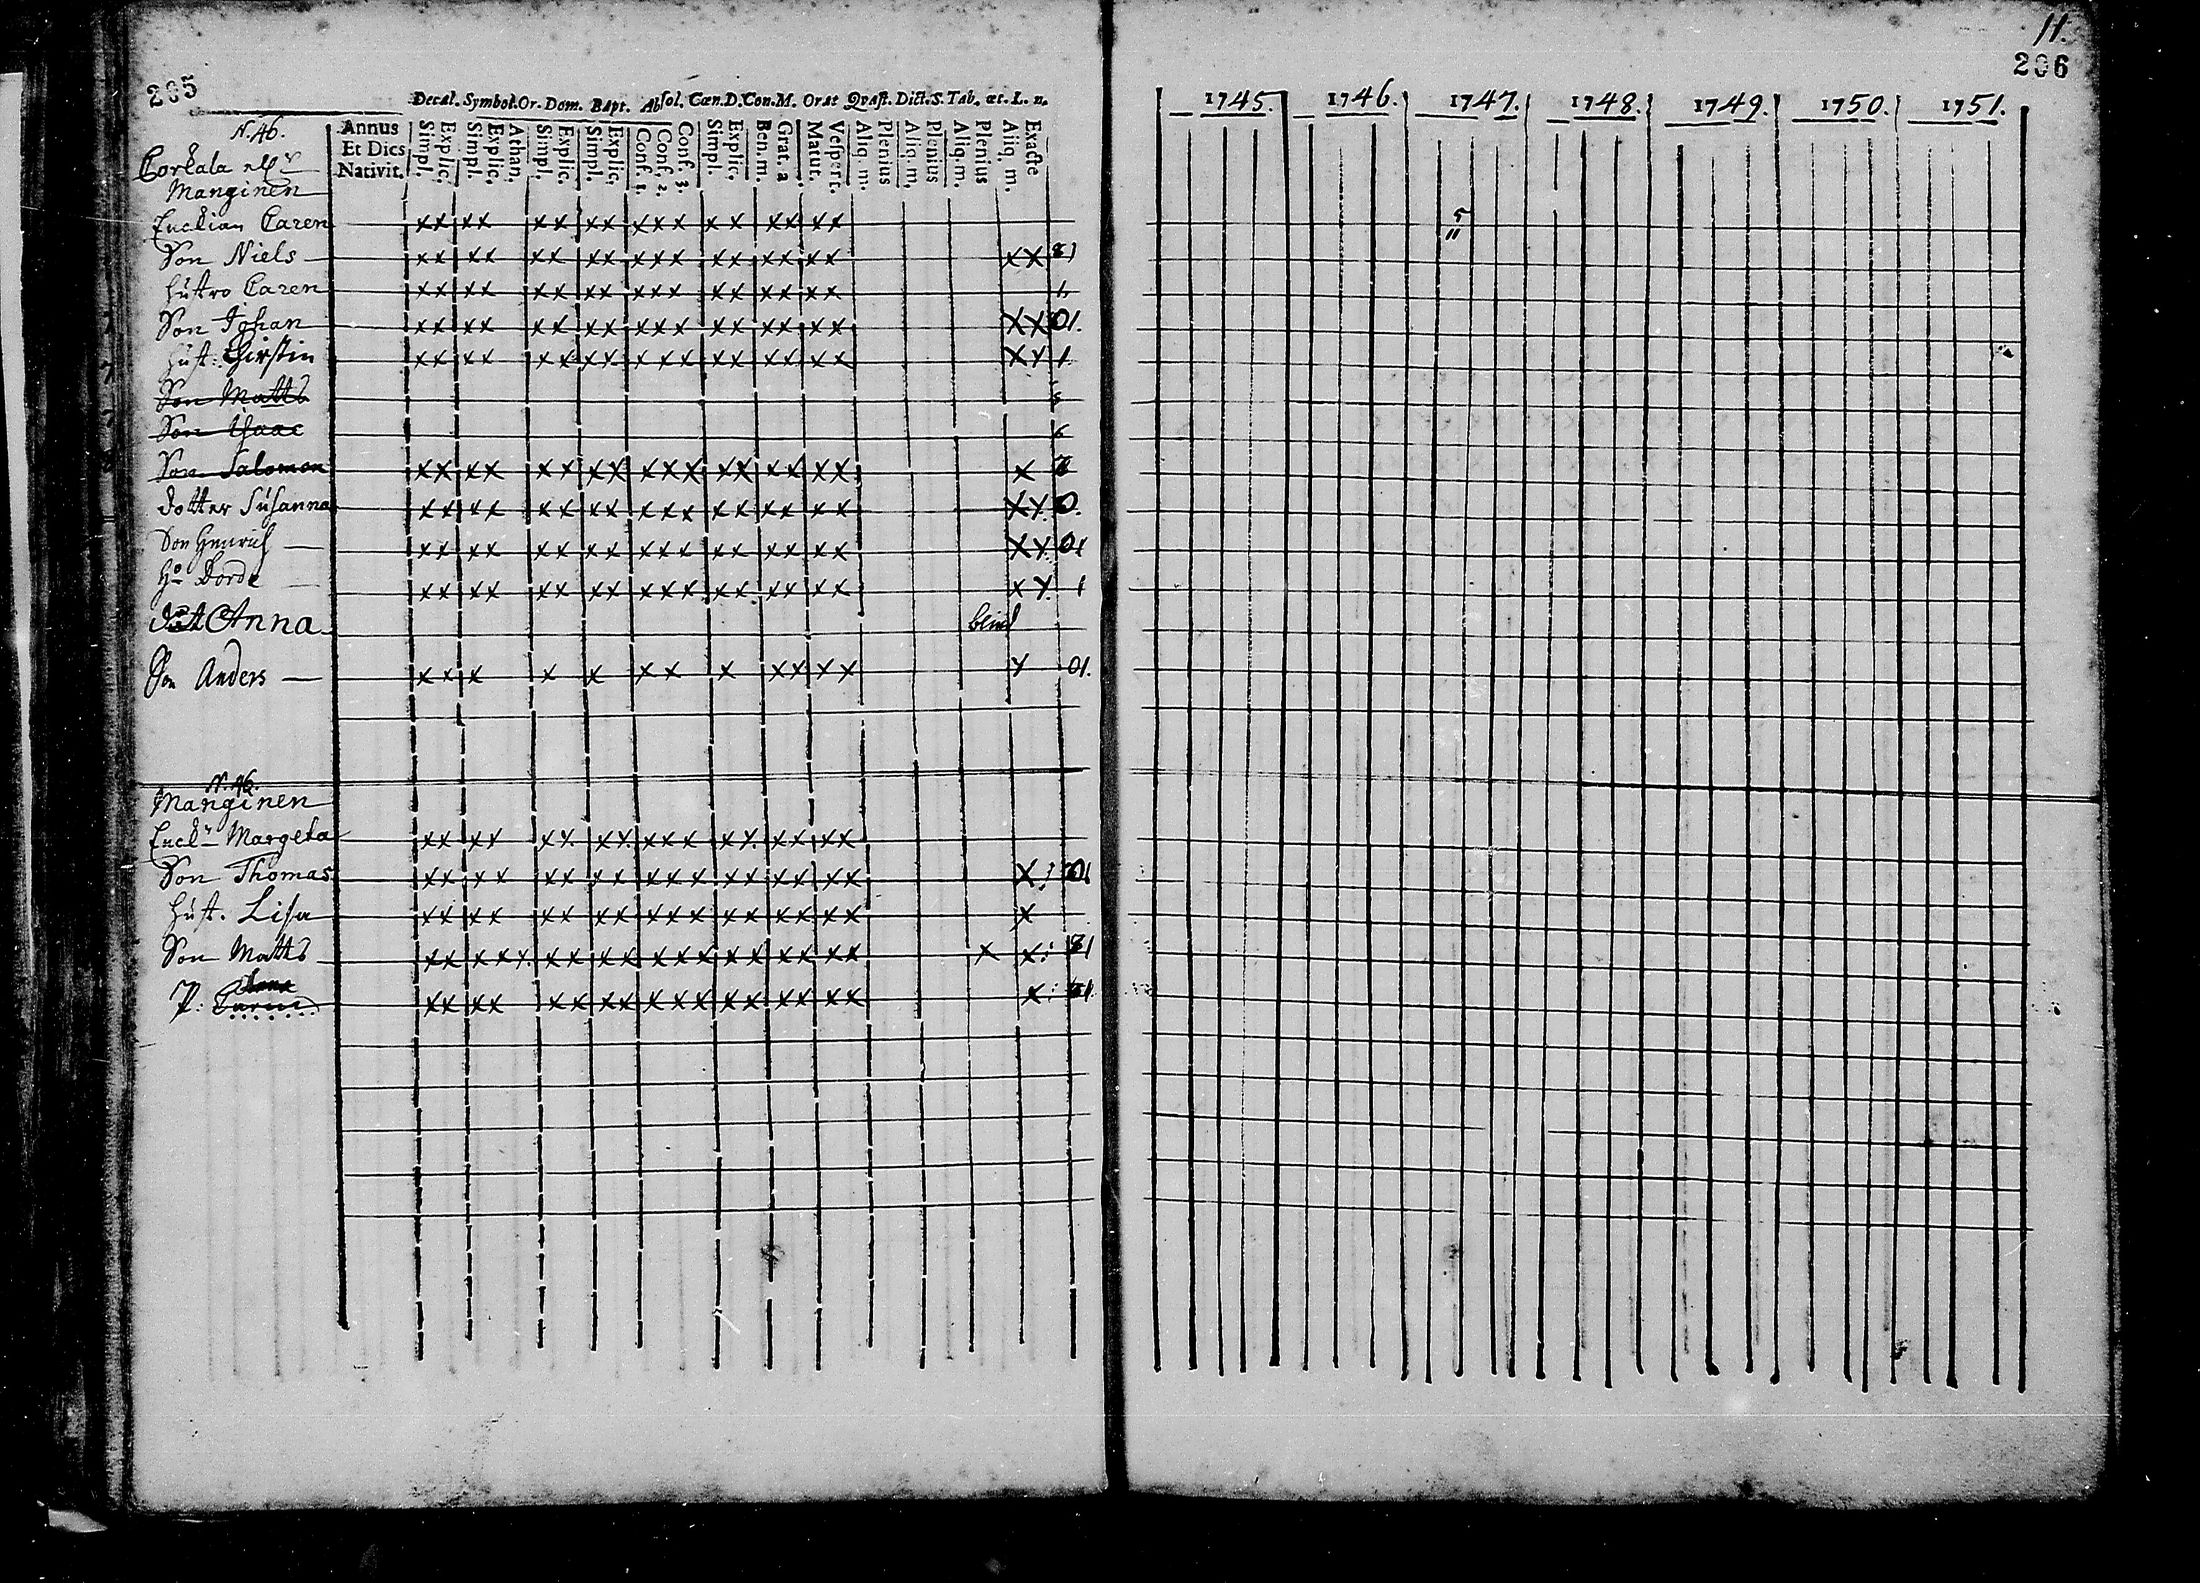 205
Decal. Symbol. Or. Dom. Bapt. Absol. Cœn. D. Con. M. Orat Qvæst. Dict. S. Tab. œc. L. n.
N. 46.
Annus
Et Dies
Nativit.
Simpl. Explic. Simpl. Explic. Athan. Simpl. Explic. Simpl. Explic. Conf. 1. Conf. 2. Conf. 3. Simpl. Explic. Ben. m. Grat. a Matut. Vespert. Aliq. m. Plenius Aliq. m. Plenius Aliq. m. Plenius Aliq. m. Exacte
Corkala
Manginen
Enckian Caren xx xx xx xx xxx xx xx xx
Son Niels xx xx xx xx xxx xx xx xx xx 81
hustro Caren xx xx xx xx xxx xx xx xx
Son Johan xx xx xx xx xxx xx xx xx xx 01.
hust: Chirstin xx xx xx xx xxx xx xx xx xx 1
Son Matts
Son Isaac
Son Salomon xx xx xx xx xxx xx xx xx x
dotter Susanna xx xx xx xx xxx xx xx xx xx 0.
Son Henrich xx xx xx xx xxx xx xx xx xx 01
Ho Borde xx xx xx xx xxx xx xx xx xx 1
Anna blind
Son Anders xx x x x xx x xx xx x 01.
N. 46.
Manginen
Enckn Margeta xx xx xx xx xxx xx xx xx
Son Thomas xx xx xx xx xxx xx xx xx x 01
hust. Lisa xx xx xx xx xxx xx xx xx x
Son Matts xx xxx xx xx xxx xx xx xx x x: 81
P: Carin xx xx xx xx xxx xx xx xx x:
11.
206
1745. 1746. 1747. 1748. 1749. 1750. 1751.
5
11